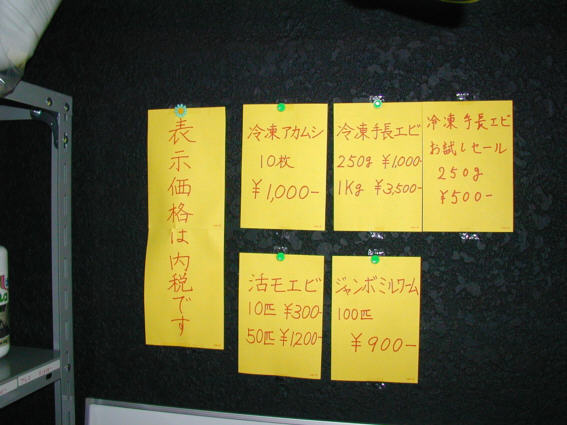 表示価格は内税です
冷凍アカムシ
10枚
¥1,000-
冷凍手長エビ
250g ¥1,000-
1Kg ¥3,500-
冷凍手長エビ
お試しセール
250g
¥500-
活モエビ
10匹 ¥300-
50匹 ¥1,200-
ジャンボミルワーム
100匹
¥900-